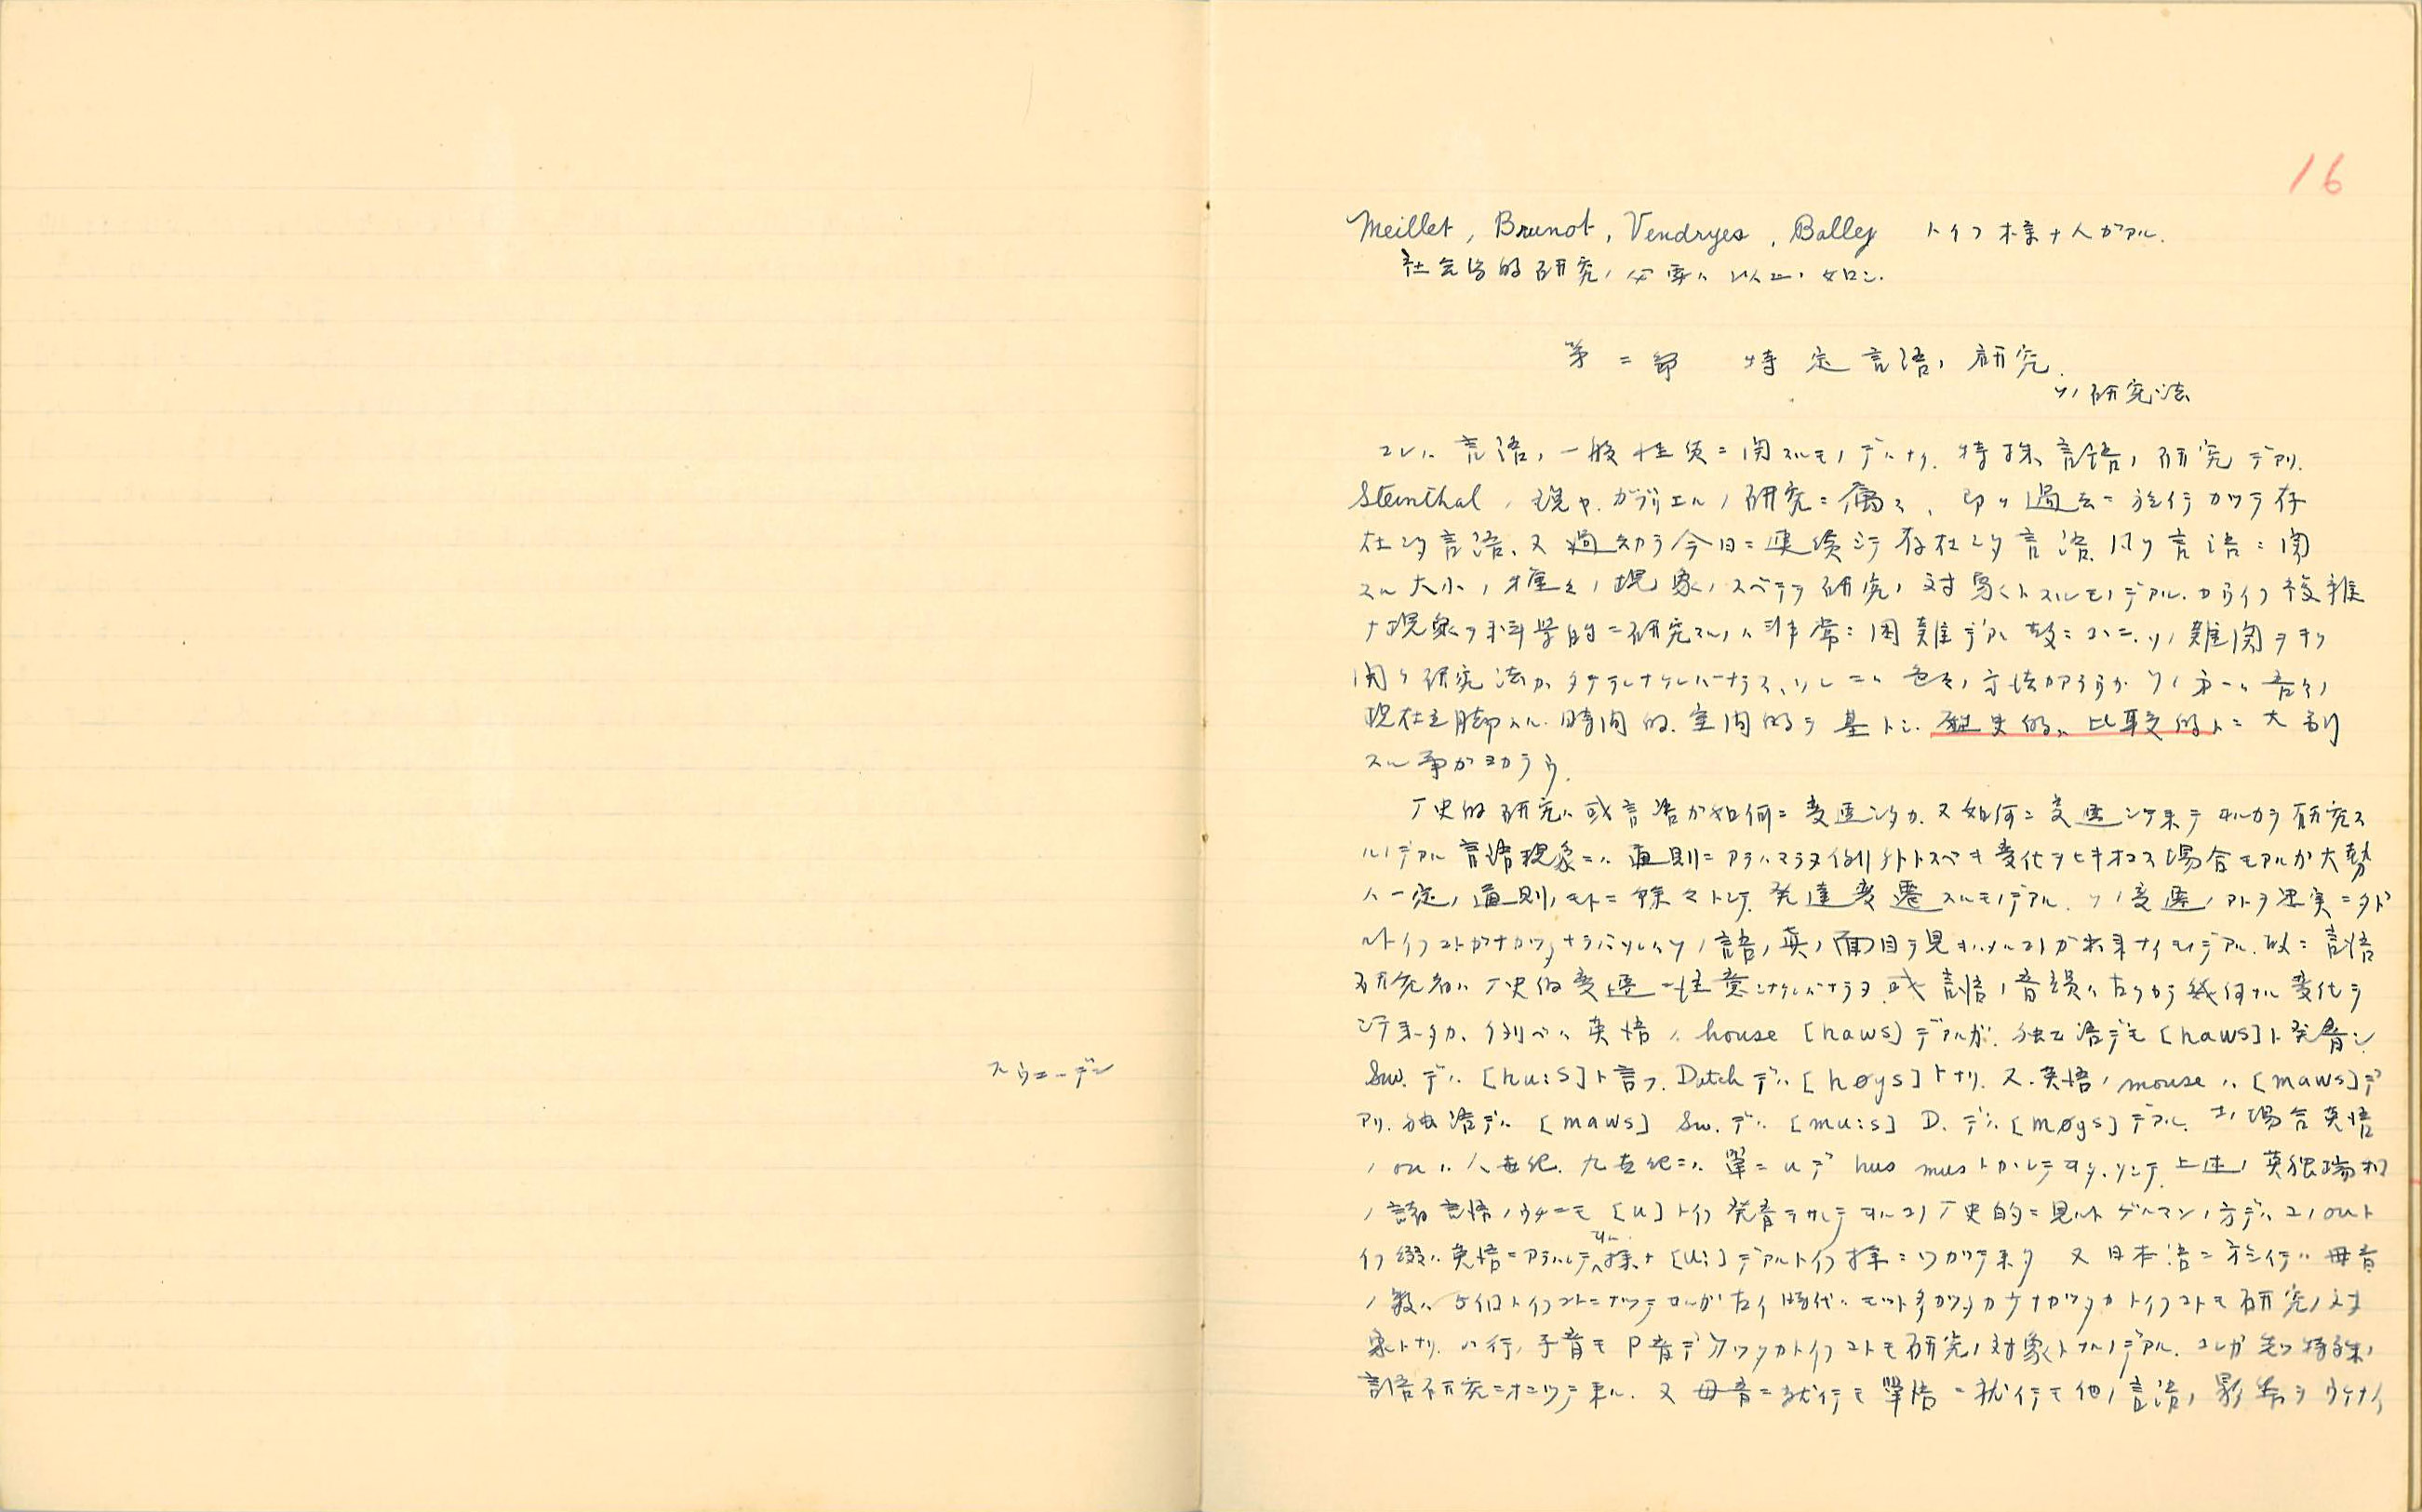 スウェーデン
16
Meillet, Brunot, Vendryes, Bally トイフ様ナ人ガアル.
社会学的研究ノ必要ハ以上ノ如シ.
第二節 特定言語ノ研究.
ソノ研究法
コレハ言語ノ一般性質ニ関スルモノデハナク. 特殊言語ノ研究デアリ.
Steinthal ノ説ヤ. ガブリエルノ研究ニ属ス、即チ過去ニ於イテカツテ存
在シタ言語、又過去カラ今日ニ連続シテ存在シタ言語、同ジ言語ニ関
スル大小ノ種々ノ現象ノスベテヲ研究ノ対象トスルモノデアル. カウイフ複雑
ナ現象ヲ科学的ニ研究スルノハ非常ニ困難デアル 故ニコヽニ. ソノ難関ヲキリ
開ク研究法ガタテラレナケレバナラヌ、ソレニハ色々ノ方法ガアラウガ ソノ第一ハ吾々ノ
現在立脚スル. 時間的. 空間的ヲ基トシ. 歴史的ト比較的トニ大別
スル事ガヨカラウ.
丆史的研究ハ或言語ガ如何ニ変遷シタカ. 又如何ニ変遷シテ来テヰルカヲ研究ス
ルノデアル 言語現象ニハ通則ニアテハマラヌ例外トスベキ変化ヲヒキオコス場合モアルガ大勢
ハ一定ノ通則ノモトニ徐々トシテ発達変遷スルモノデアル. ソノ変遷ノアトヲ忠実ニタド
ルトイフコトガナカツタナラバソレハソノ語ノ真ノ面目ヲ見キハメルコトガ出来ナイモノデアル. 故ニ言語
研究者ハ丆史的変遷ニ注意シナケレバナラヌ. 或言語ノ音韻ハ古クカラ幾何ナル変化ヲ
シテ来タカ. 例ヘバ英語ハ house [haws] デアルガ. 独乙語デモ [haws] ト発音シ
Sw. デハ [hu:s] ト言フ. Dutch デハ [høys] トナリ. 又. 英語ノ mouse ハ [maws] デ
アリ. 独語デハ [maws] Sw. デハ [mu:s] D. デハ [møys] デアル. コノ場合英語
ノ ou ハ八世紀. 九世紀ニハ單ニ u デ hus mus トカレテヰタ. ソシテ上述ノ英独瑞和
ノ諸言語ノウチニモ [u] トイフ発音ヲサレテヰルコノ丆史的ニ見ルトゲルマンノ方デハコノ ou ト
イフ綴ハ英語ニアラハレテヰル様ナ [u:] デアルトイフ様ニワカツテ来タ 又日本語ニ於イテハ母音
ノ数ハ五個トイフコトニナツテヰルガ古イ時代ハモット多カツタカ少ナカツタカトイフコトモ研究ノ対
象トナリ. ハ行ノ子音モP音デアツタカトイフコトモ研究ノ対象トナルノデアル. コレガ先ヅ特殊ノ
言語研究ニオコツテ来ル. 又母音ニ就イテモ單語ニ就イテモ他ノ言語ノ影響ヲウケナイ